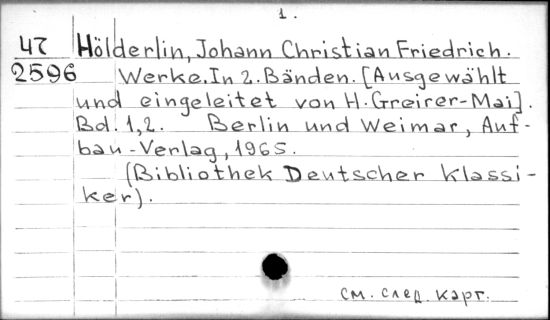 1.
И7 Hölderlin, Johann Christian Friedrich.
2596 Werke. In 2. Bänden. [Ausgewählt
und eingeleitet von H. Greirer-Mai].
Bd. 1,2. Berlin und Weimar, Auf-
bau-Verlag, 1965.
(Bibliothek Deutscher Klassi-
ker).
см. след. карт.